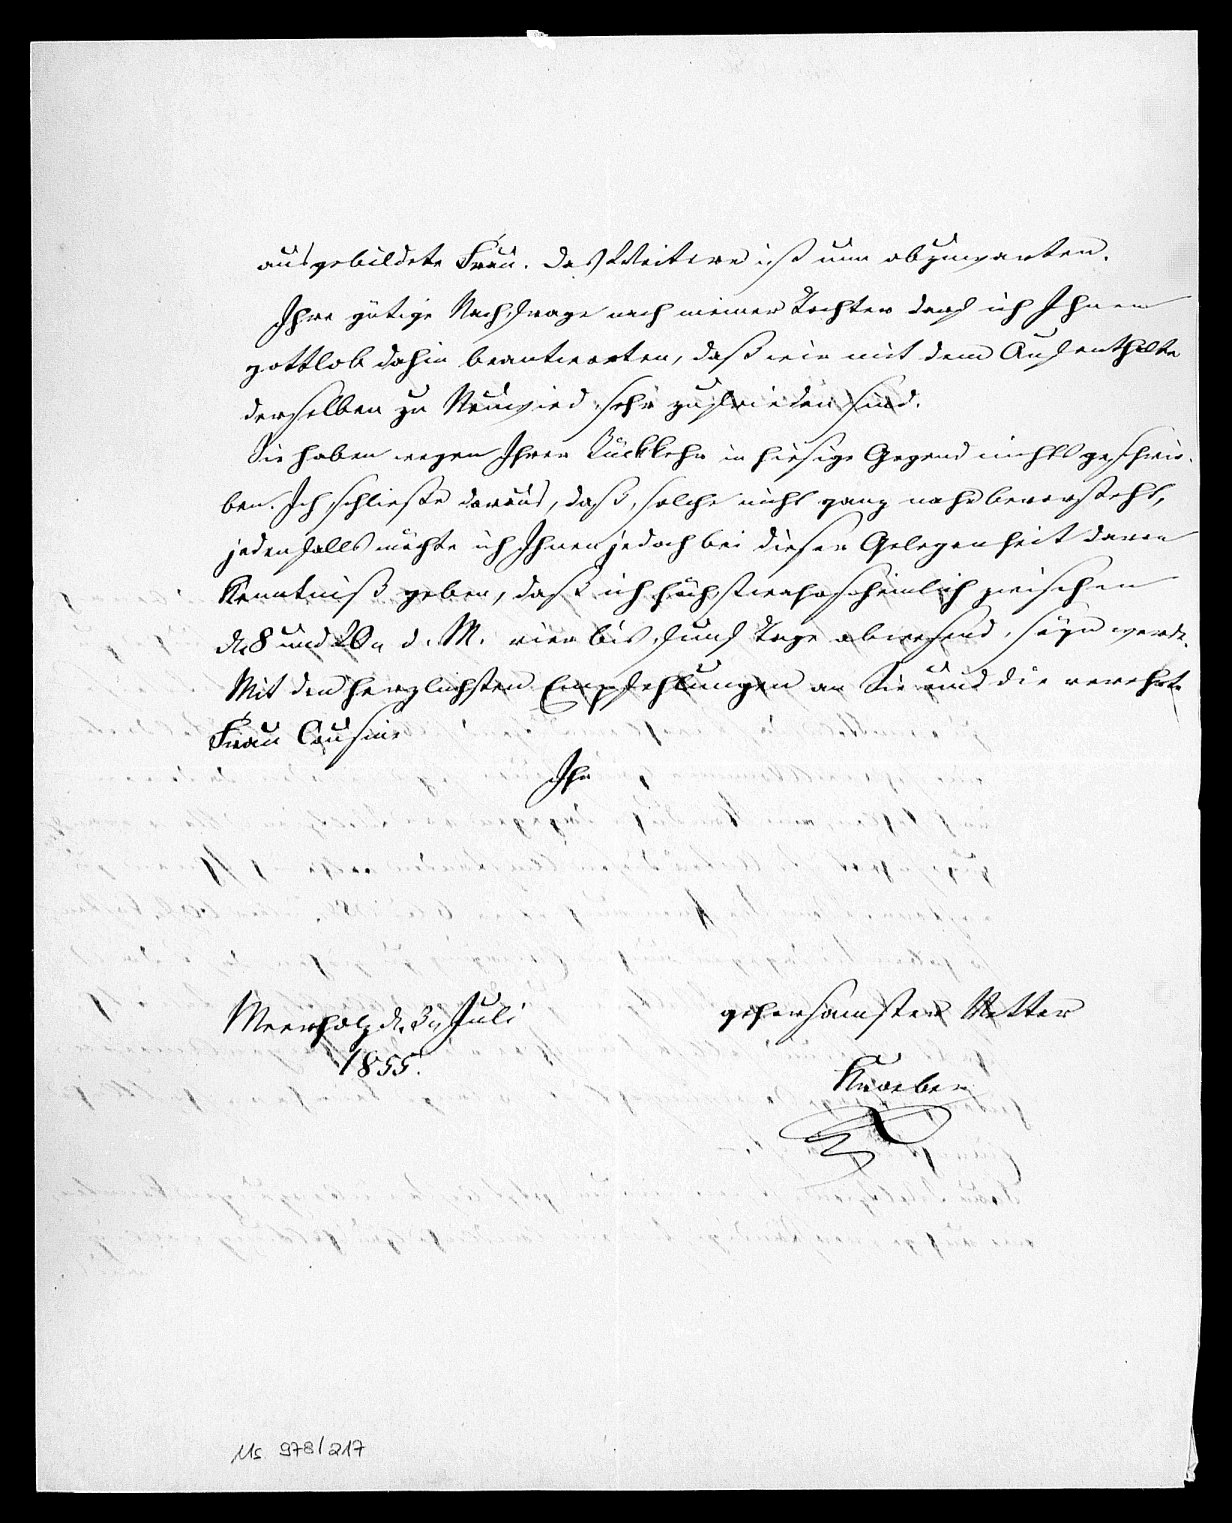 ausgebildete Frau. Das Weitere ist nun abzuwarten.
Ihre gütige Nachfrage nach meiner Tochter darf ich Ihnen
gottlob dahin beantworten, daß wir mit dem Aufenthalte
derselben zu Neuwied sehr zufrieden sind.
Sie haben wegen Ihrer Rückkehr in hiesige Gegend nichts geschrie-
ben. Ich schließe daraus, daß solche nicht ganz nahe bevorsteht,
jedenfalls möchte ich Ihnen jedoch bei dieser Gelegenheit davon
Kenntniß geben, daß ich höchstwahrscheinlich zwischen
d. 8 und 20n d. M. vier bis fünf Tage abwesend seyn werde.
Mit den herzlichsten Empfehlungen an Sie und die verehrte
Frau Cousine
Ihr
gehorsamster Vetter
Meerholz d. 3n Juli
1855.
Kroeber
Ms. 978/217